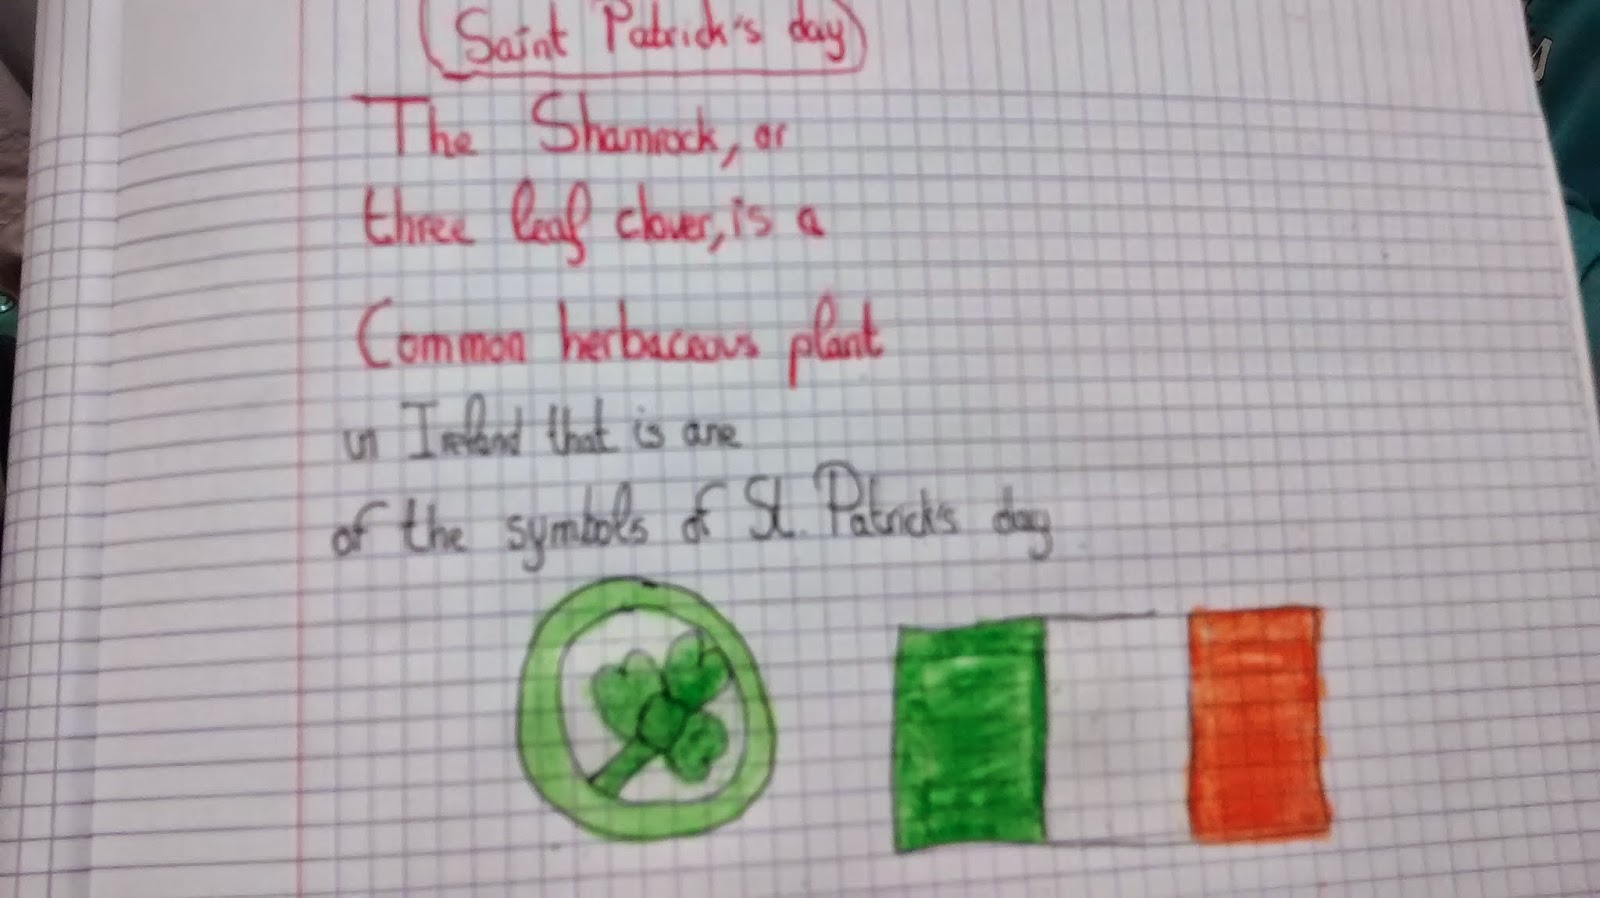 Saint Patrick's day
The Shamrock, or
three leaf clover, is a
Common herbaceous plant
in Ireland that is one
of the symbols of St. Patrick's day